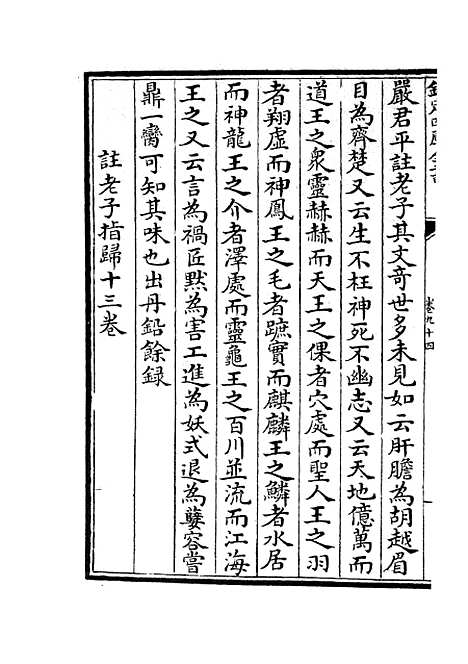 嚴君平註老子其文竒世多未見如云肝膽為胡越眉
目為齊楚又云生不枉神死不幽志又云天地億萬而
道王之衆靈赫赫而天王之倮者穴處而聖人王之羽
者翔虛而神鳳王之毛者蹠實而麒麟王之鱗者水居
而神龍王之介者澤處而靈龜王之百川並流而江海
王之又云言為禍匠黙為害工進為妖式退為孽容嘗
鼎一臠可知其味也出丹鉛餘録
註老子指歸十三卷
卷九十四